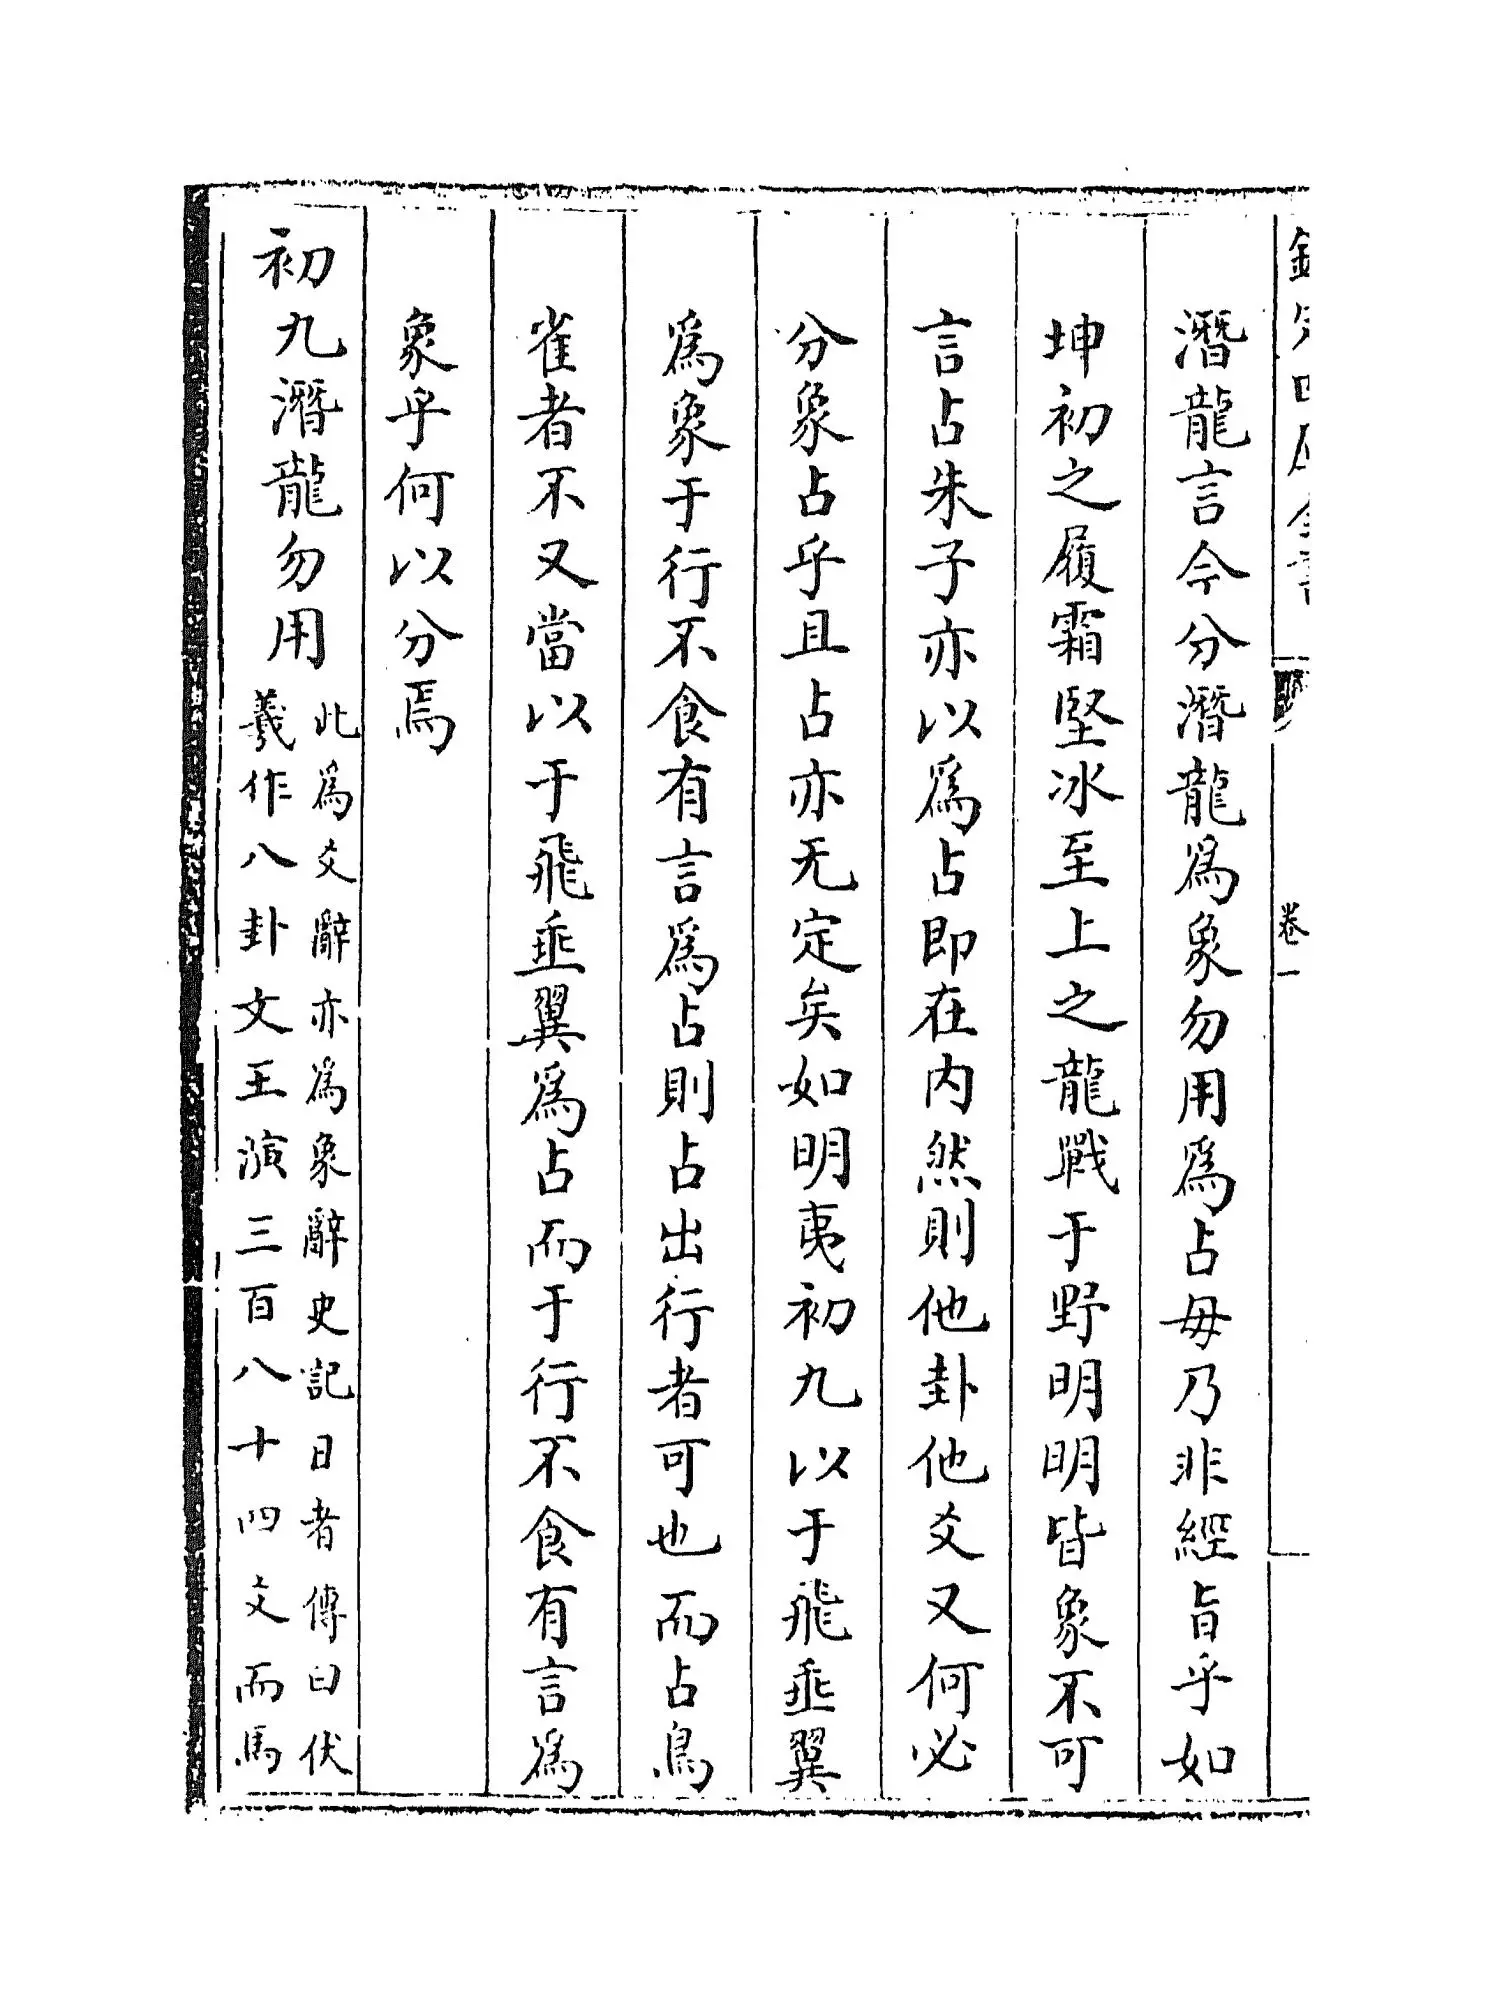 欽定四庫全書
卷一
潛龍言今分潛龍爲象勿用爲占毋乃非經旨乎如
坤初之履霜堅冰至上之龍戰于野明明皆象不可
言占朱子亦以爲占即在内然則他卦他爻又何必
分象占乎且占亦无定矣如明夷初九以于飛垂翼
爲象于行不食有言爲占則占出行者可也而占鳥
雀者不又當以于飛垂翼爲占而于行不食有言爲
象乎何以分焉
初九潛龍勿用
此爲爻辭亦爲象辭史記日者傳曰伏
羲作八卦文王演三百八十四爻而馬